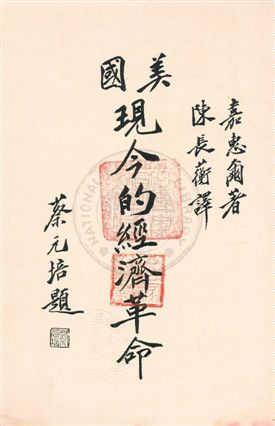 嘉惠爾著
陳長蘅譯
美國
現今的經濟革命
蔡元培題
NATIONAL